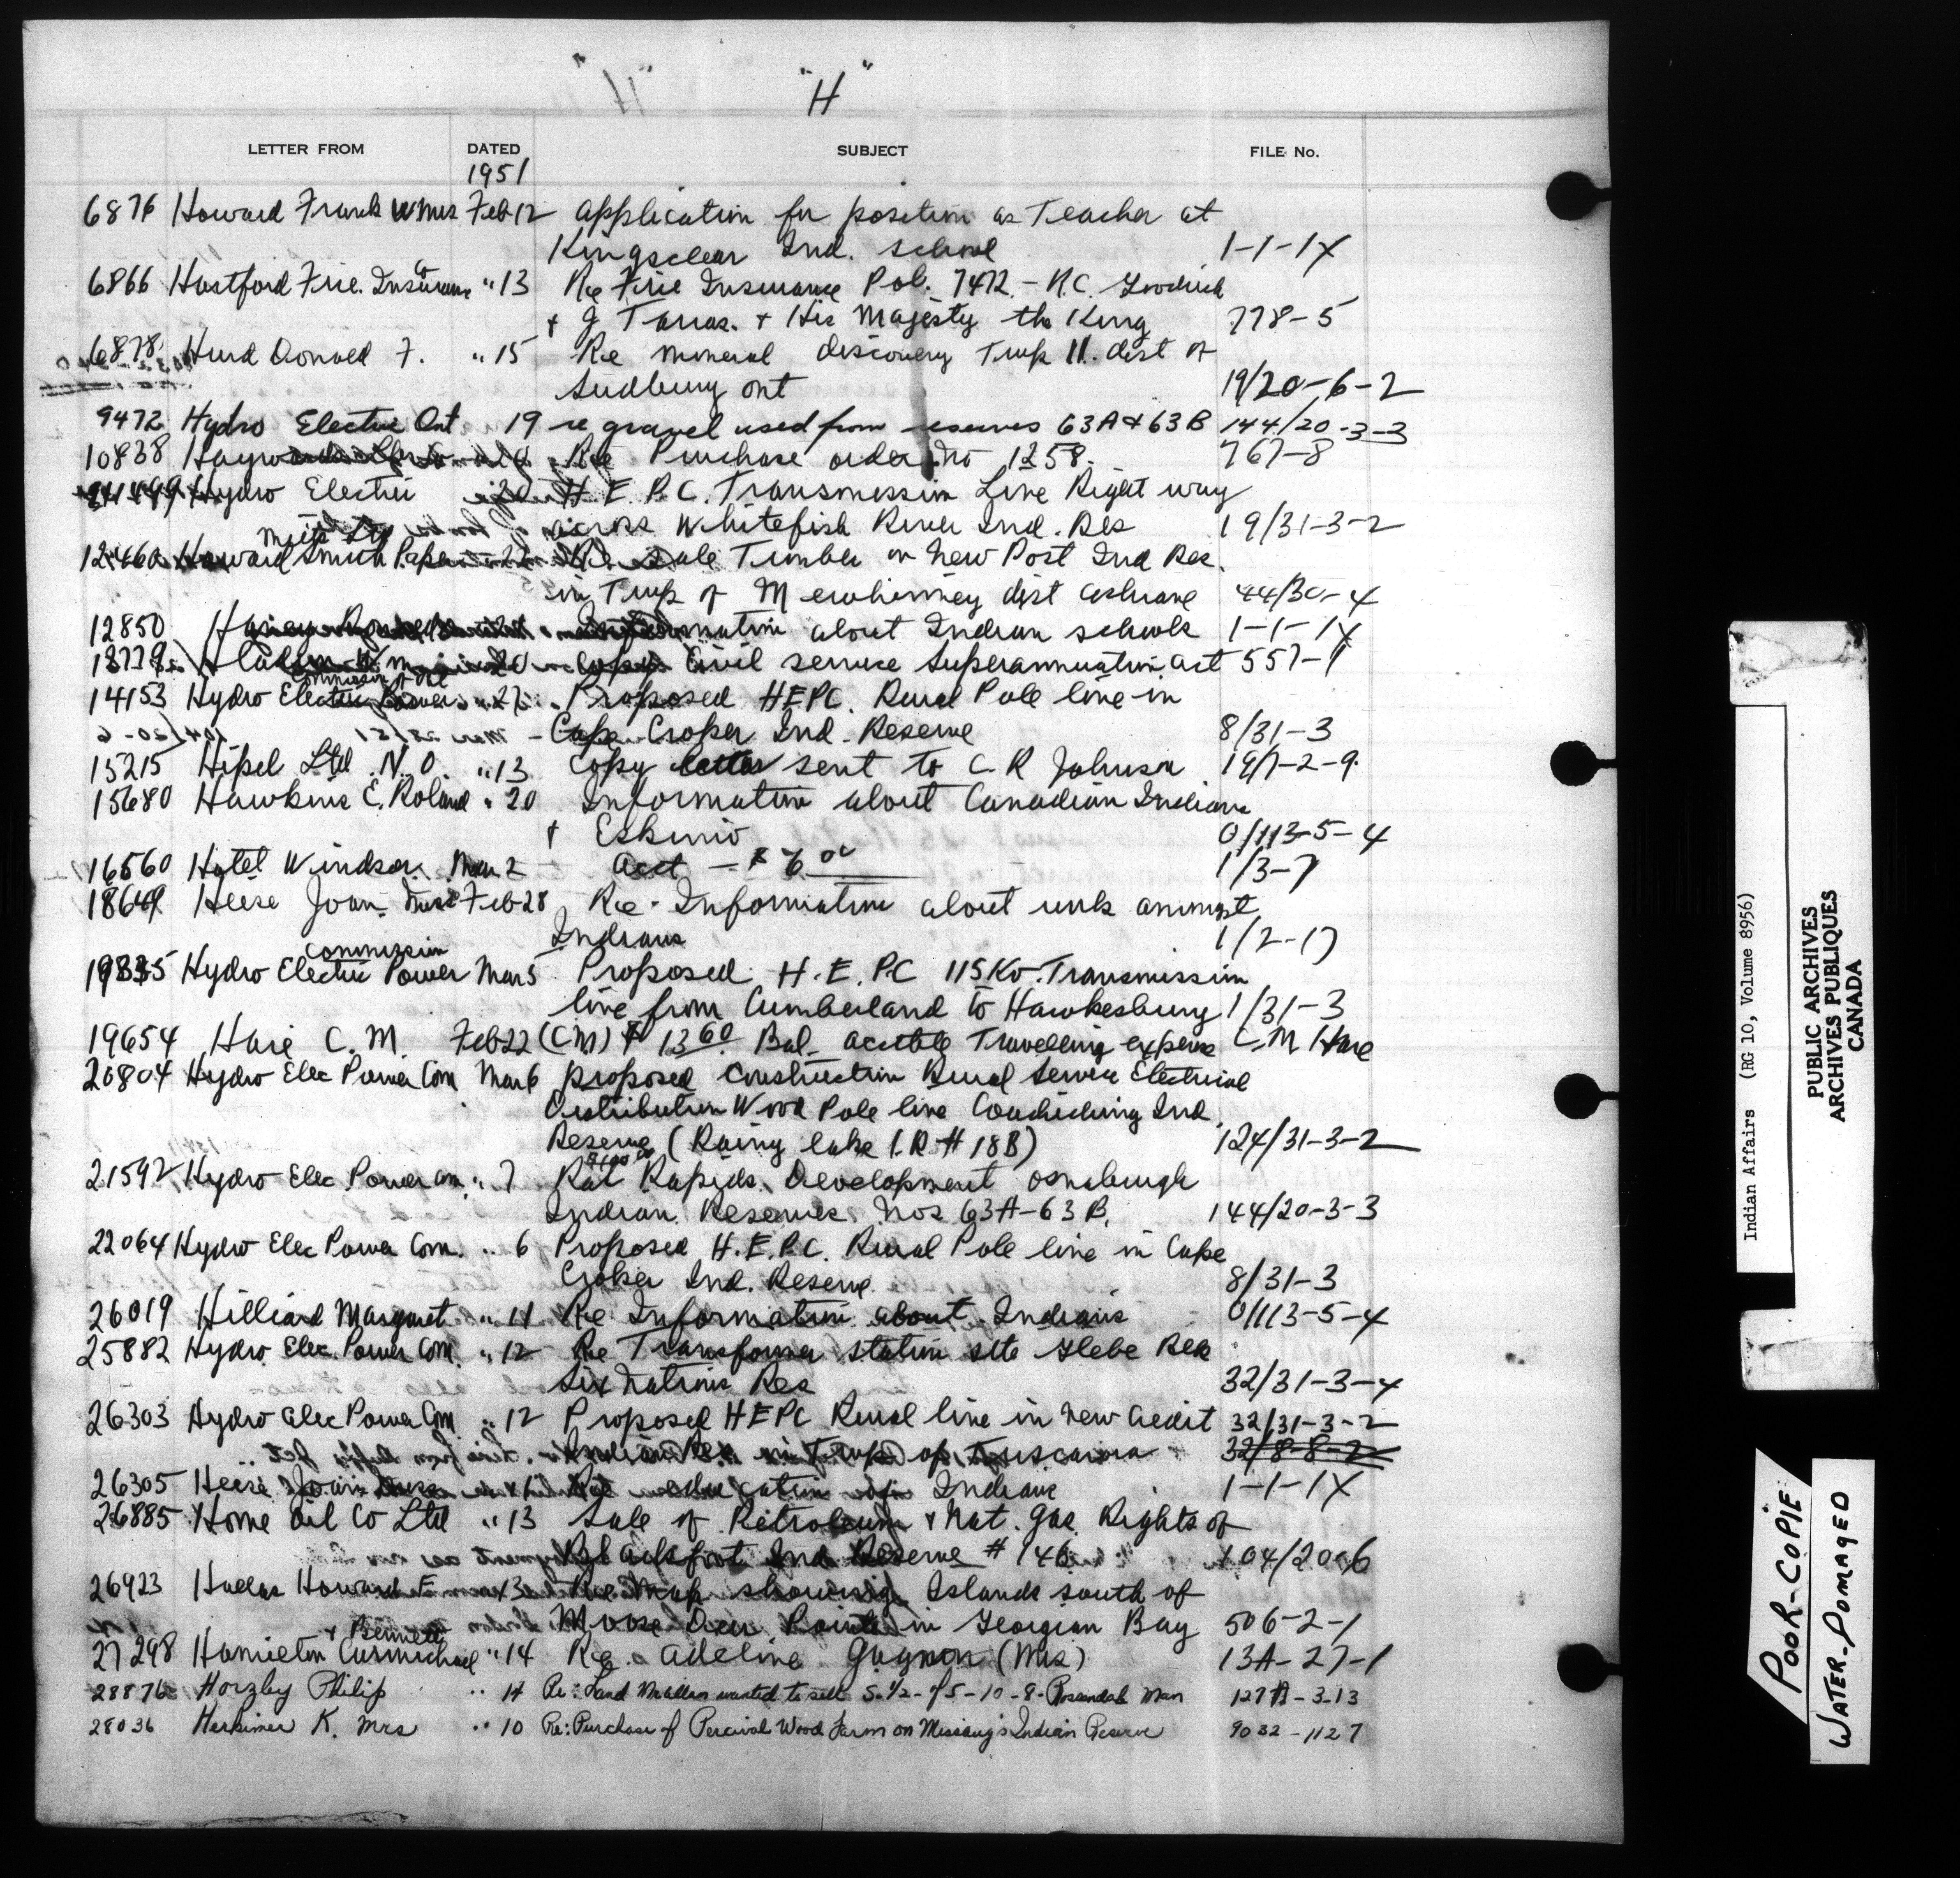 "H"
LETTER FROM DATED SUBJECT FILE No.
1951
6876 Howard Frank W Mrs Feb 12 application for position as Teacher at
Kingsclear Ind. school 1-1-1X
6866 Hartford Fire Insurance Co " 13 Re Fire Insurance Pol. 7472 - R.C. Goodrich
+ J Tarras. + His Majesty the King 778-5
6878 Hurd Donald F. " 15 Re mineral discovery Twp 11. dist of
Sudbury ont 19/20-6-2
9472 Hydro Electric Ont 19 re gravel used from reserves 63A & 63B 144/20-3-3
10838 Re Purchase order No 1258. 767-8
Hydro Electric 20 H.E.P.C. Transmission Line Right way
across Whitefish River Ind. Res 19/31-3-2
12460 Howard Smith Paper Mills Ltd 22 Re Sale Timber on New Post Ind Res.
in Twp of Mewhinney dist Cochrane 44/30-4
12850 Information about Indian schools 1-1-1X
20 Copy Civil service Superannuation act 557-1
14153 Hydro Electric Power Commission of Ont " 27 Proposed HEPC. Rural Pole line in
Cape Croker Ind. Reserve 8/31-3
15215 Hipel Ltd N.O. " 13 Copy letter sent to C.R Johnson 19/7-2-9
15680 Hawkins E. Roland " 20 Information about Canadian Indians
+ Eskimo 0/113-5-4
16560 Hotel Windsor Mar 2 acct - $6.00 1/3-7
18649 Heese Joan Miss Feb 28 Re - Information about work amongst
Indians 1/2-17
19835 Hydro Electric Power Commission Mar 5 Proposed H.E.P.C 115 Kv. Transmission
line from Cumberland to Hawkesbury 1/31-3
19654 Hare C.M. Feb 22 (CM) $1360 Bal. Travelling expense C.M Hare
20804 Hydro Elec Power Com Mar 6 proposed construction Rural Service Electrical
Distribution Wood Pole line Couchiching Ind.
Reserve (Rainy lake I.R # 18B) 124/31-3-2
21592 Hydro Elec. Power Com. " 7 Rat Rapids Development Osnaburgh
Indian Reserves Nos 63A-63B. 144/20-3-3
22064 Hydro Elec Power Com. " 6 Proposed H.E.P.C. Rural Pole line in Cape
Croker Ind. Reserve. 8/31-3
26019 Hilliard Margaret " 11 Re Information about Indians 0/113-5-4
25882 Hydro Elec. Power Com. " 12 Re Transformer station site Glebe Res
Six Nations Res 32/31-3-4
26303 Hydro Elec Power Com " 12 Proposed HEPC Rural line in New Credit 32/31-3-2
Indian Res. in Twp of Tuscarora 32/8-8-2
26305 Heese Joan Miss Re education of Indians 1-1-1X
26885 Home Oil Co Ltd " 13 Sale of Petroleum & Nat. Gas Rights of
Blackfoot Ind Reserve # 146 104/20-6
26923 Howard E 13 Re Map showing Islands south of
Moose Deer Point in Georgian Bay 506-2-1
27298 Hamilton Carmichael + Bennett " 14 Re. Adeline Gagnon (Mrs) 13A-27-1
28876 Horzby Philip " 14 Re: Land wanted to sell S-1/2-of 5-10-8-Rosendale Man 127A-3-13
28036 Herkimer K. Mrs " 10 Re: Purchase of Percival Wood Farm on Missaug's Indian Reserve 9032-1127
Indian Affairs (RG 10, Volume 8956)
PUBLIC ARCHIVES
ARCHIVES PUBLIQUES
CANADA
POOR-COPIE
WATER-DOMAGED